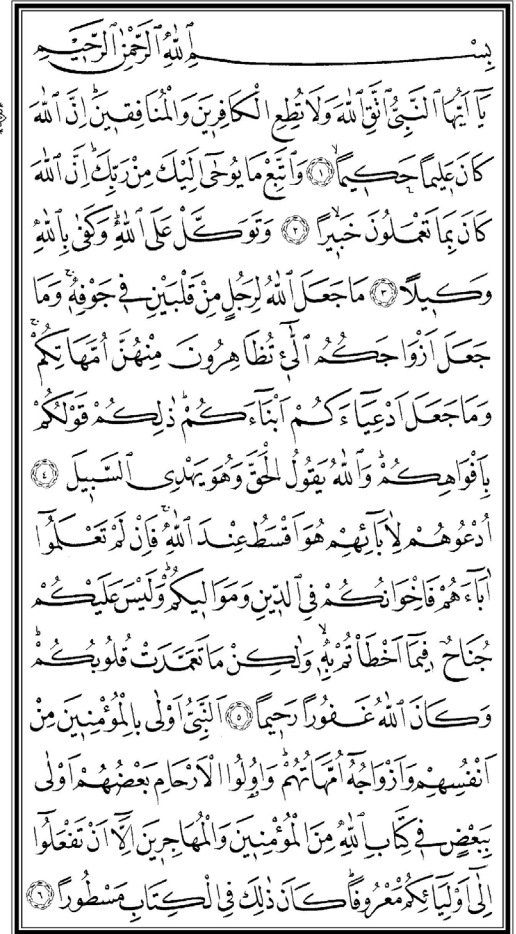 بِسْمِ ٱللّٰهِ ٱلرَّحْمٰنِ ٱلرَّحِيمِ
يَٓا اَيُّهَا ٱلنَّبِىُّ ٱتَّقِ ٱللّٰهَ وَلَا تُطِعِ ٱلْكَافِرٖينَ وَٱلْمُنَافِقٖينَۜ اِنَّ ٱللّٰهَ
كَانَ عَلٖيمًا حَكٖيمًاۙ ﴿١﴾ وَٱتَّبِعْ مَا يُوحٰٓى اِلَيْكَ مِنْ رَبِّكَۜ اِنَّ ٱللّٰهَ
كَانَ بِمَا تَعْمَلُونَ خَبٖيرًاۙ ﴿٢﴾ وَتَوَكَّلْ عَلَى ٱللّٰهِۜ وَكَفٰى بِٱللّٰهِ
وَكٖيلًا ﴿٣﴾ مَا جَعَلَ ٱللّٰهُ لِرَجُلٍ مِنْ قَلْبَيْنِ فٖى جَوْفِهٖۚ وَمَا
جَعَلَ اَزْوَاجَكُمُ ٱلّٰٓـٖٔى تُظَاهِرُونَ مِنْهُنَّ اُمَّهَاتِكُمْۚ
وَمَا جَعَلَ اَدْعِيَٓاءَكُمْ اَبْنَٓاءَكُمْۜ ذٰلِكُمْ قَوْلُكُمْ
بِاَفْوَاهِكُمْۜ وَٱللّٰهُ يَقُولُ ٱلْحَقَّ وَهُوَ يَهْدِى ٱلسَّبٖيلَ ﴿٤﴾
اُدْعُوهُمْ لِاٰبَٓائِهِمْ هُوَ اَقْسَطُ عِنْدَ ٱللّٰهِۚ فَاِنْ لَمْ تَعْلَمُٓوا
اٰبَٓاءَهُمْ فَاِخْوَانُكُمْ فِى ٱلدّٖينِ وَمَوَالٖيكُمْۜ وَلَيْسَ عَلَيْكُمْ
جُنَاحٌ فٖيمَٓا اَخْطَأْتُمْ بِهٖۙ وَلٰكِنْ مَا تَعَمَّدَتْ قُلُوبُكُمْۜ
وَكَانَ ٱللّٰهُ غَفُورًا رَحٖيمًا ﴿٥﴾ اَلنَّبِىُّ اَوْلٰى بِالْمُؤْمِنٖينَ مِنْ
اَنْفُسِهِمْ وَاَزْوَاجُهُٓ اُمَّهَاتُهُمْۜ وَاُو۬لُوا ٱلْاَرْحَامِ بَعْضُهُمْ اَوْلٰى
بِبَعْضٍ فٖى كِتَابِ ٱللّٰهِ مِنَ ٱلْمُؤْمِنٖينَ وَٱلْمُهَاجِرٖينَ اِلَّٓا اَنْ تَفْعَلُٓوا
اِلٰٓى اَوْلِيَٓائِكُمْ مَعْرُوفًاۜ كَانَ ذٰلِكَ فِى ٱلْكِتَابِ مَسْطُورًا ﴿٦﴾